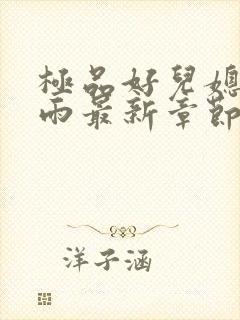 極品好兒媳
雨最新章節
洋子涵